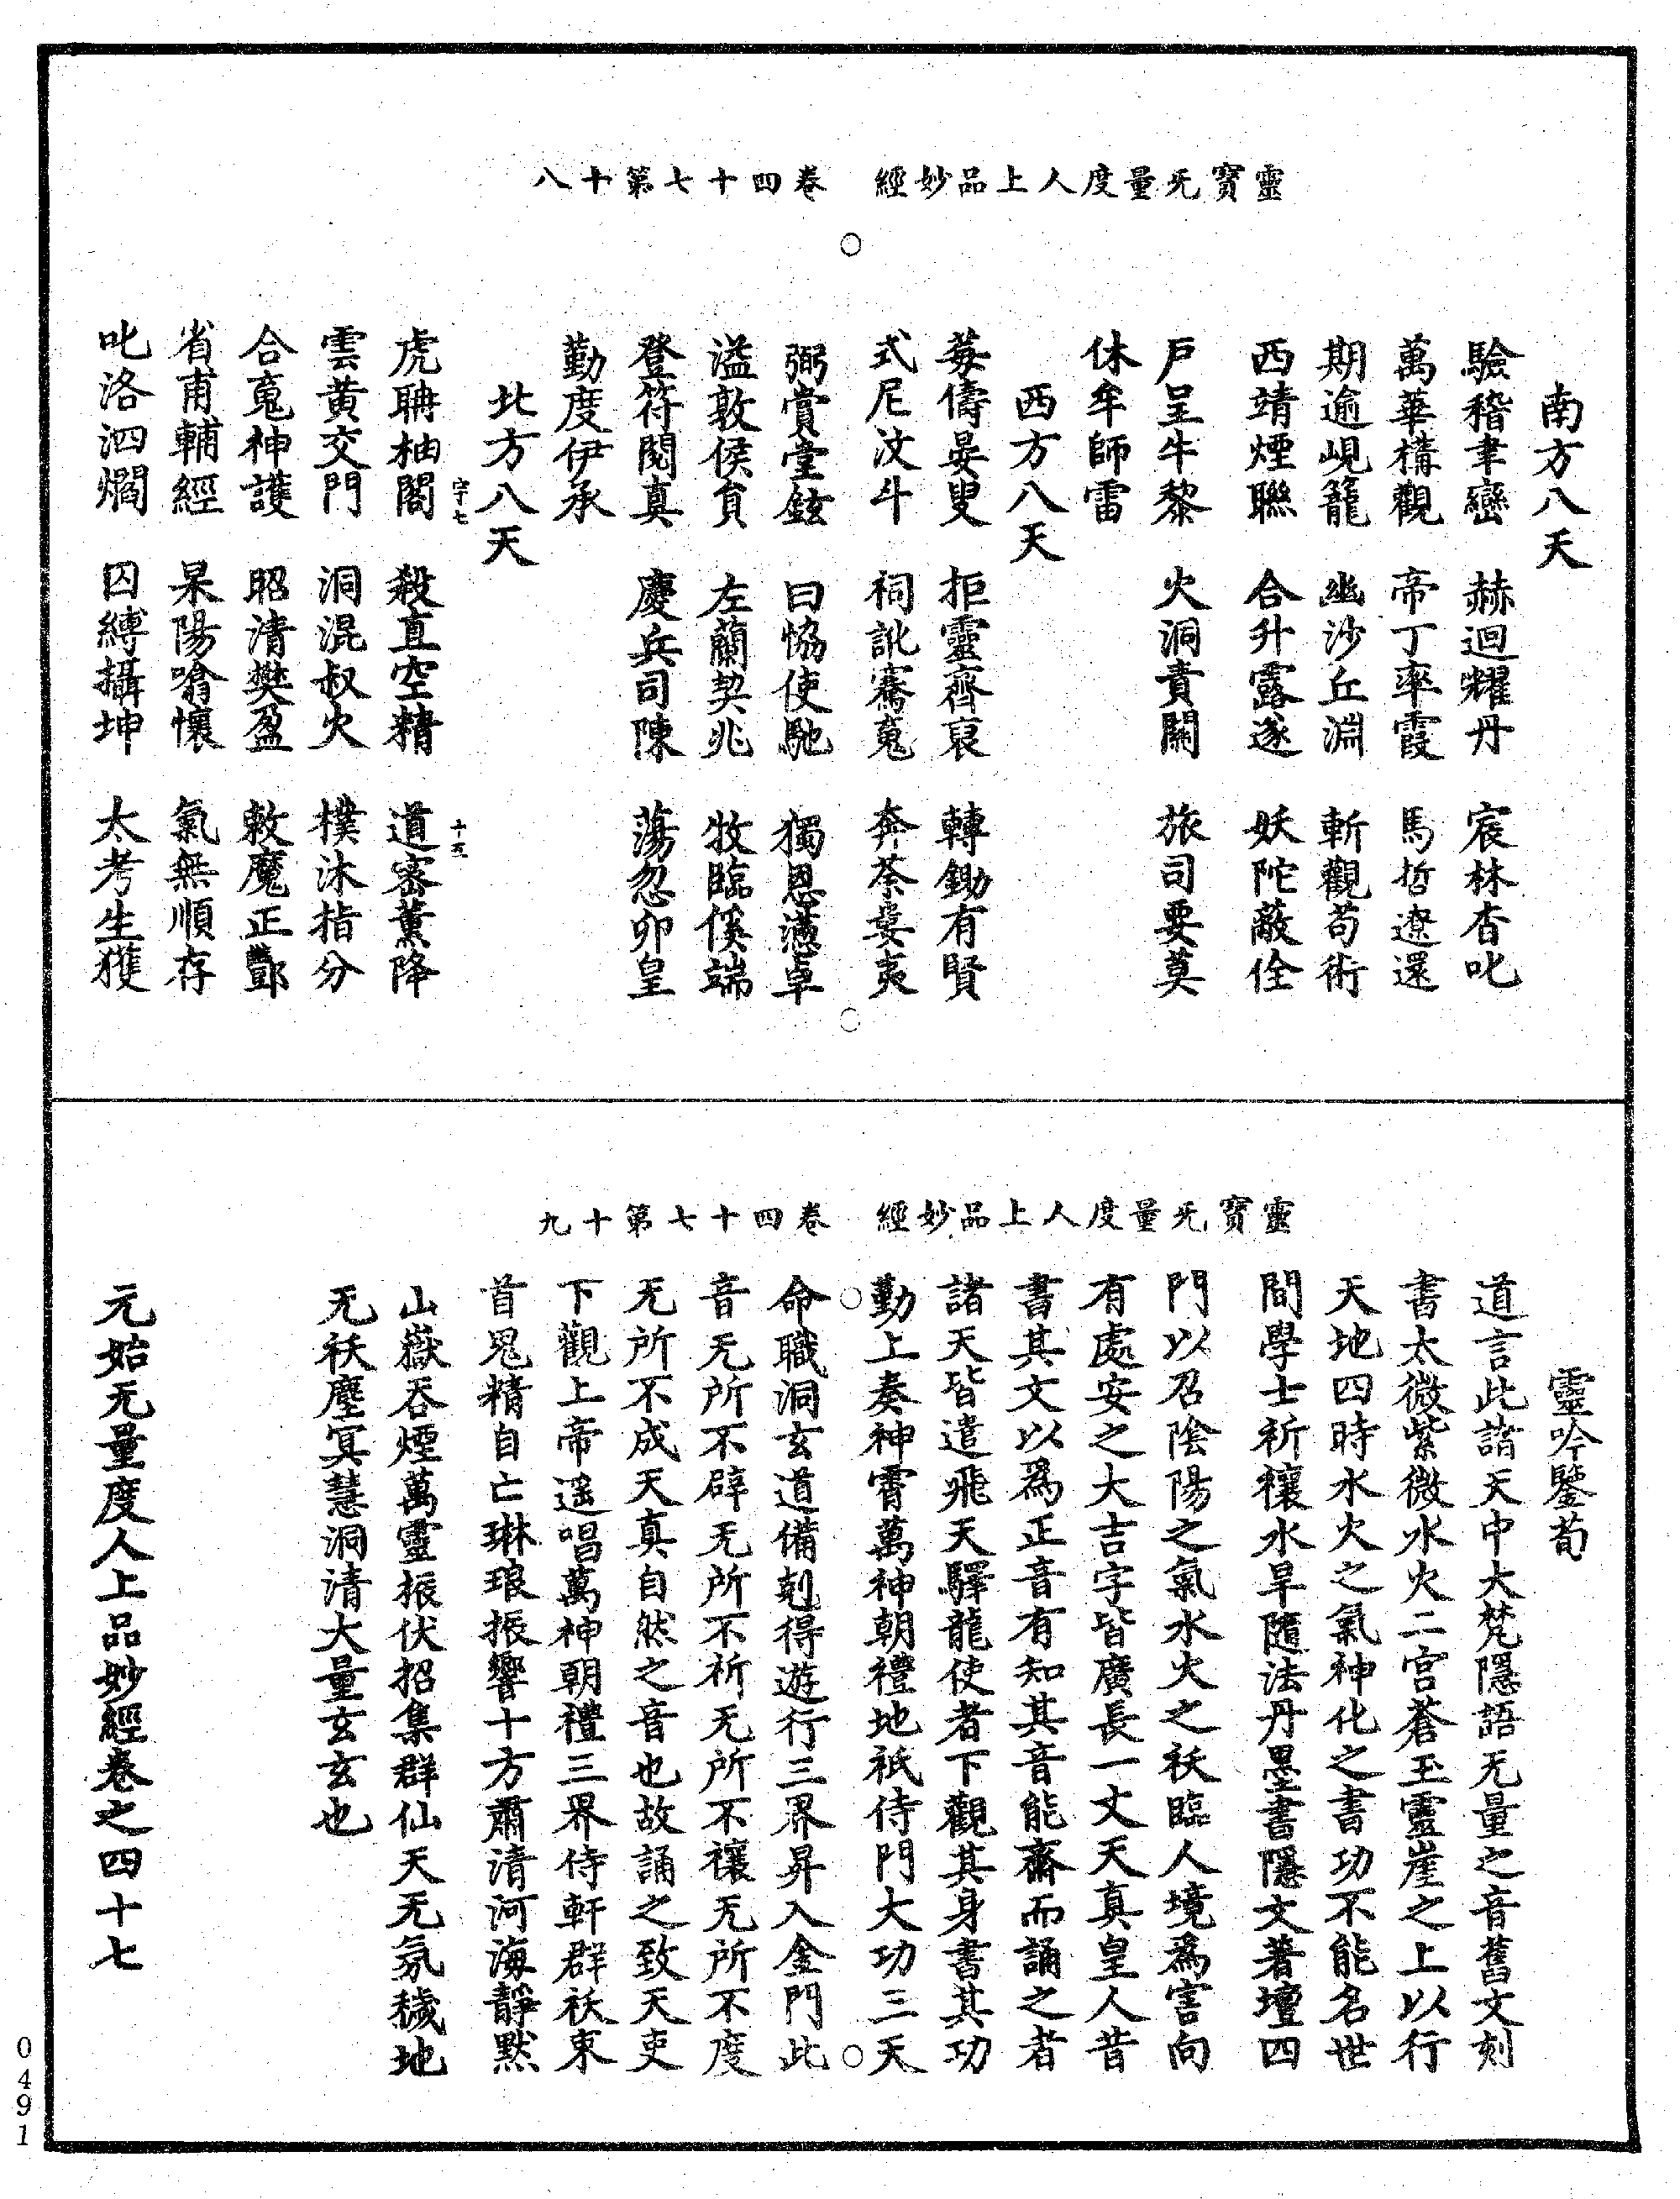 靈寶无量度人上品妙經　卷四十七第十八
南方八天
驗稽聿巒　赫迴耀丹　宸林杳叱
萬華構觀　帝丁率霞　馬哲遼還
期逾峴籠　幽沙丘淵　斬觀苟術
西靖煙聯　合升露遂　妖陀蔽佺
戶呈牛黎　火洞責關　旅司要莫
休牟師雷
西方八天
莓儔晏叟　拒靈齊裒　轉鋤有賢
式尼汶斗　祠訛騫䰟　奔荼婁夷
弼賞堂鉉　曰恊使馳　獨恩懣卓
溢敦侯負　左蘭契兆　牧臨傒端
登符閱真　慶兵司陳　蕩忽卯皇
勤度伊承
北方八天
字十七　十五
虎聃柚閣　殺直空精　道密薰降
雲黃交門　洞混叔火　樸沐指分
合䰟神護　昭清樊盈　敕魔正酆
省甫輔經　杲陽噏懷　氣無順存
叱洛泗爓　囚縛攝坤　太考生獲
靈寶无量度人上品妙經　卷四十七第十九
靈吟鑒荀
道言此諸天中大梵隱語无量之音舊文刻
書太微紫微水火二宮蒼玉靈崖之上以行
天地四時水火之氣神化之書功不能名世
間學士祈禳水旱隨法丹墨書隱文著壇四
門以召陰陽之氣水火之祅臨人境為害向
有處安之大吉字皆廣長一丈天真皇人昔
書其文以為正音有知其音能齋而誦之者
諸天皆遣飛天驛龍使者下觀其身書其功
勤上奏神霄萬神朝禮地祇侍門大功三天
命職洞玄道備剋得遊行三界昇入金門此
音无所不辟无所不祈无所不禳无所不度
无所不成天真自然之音也故誦之致天吏
下觀上帝遥唱萬神朝禮三界侍軒群祅束
首鬼精自亡琳琅振響十方肅清河海靜默
山嶽吞煙萬靈振伏招集群仙天无氛穢地
无祅塵冥慧洞清大量玄玄也
元始无量度人上品妙經卷之四十七
0491